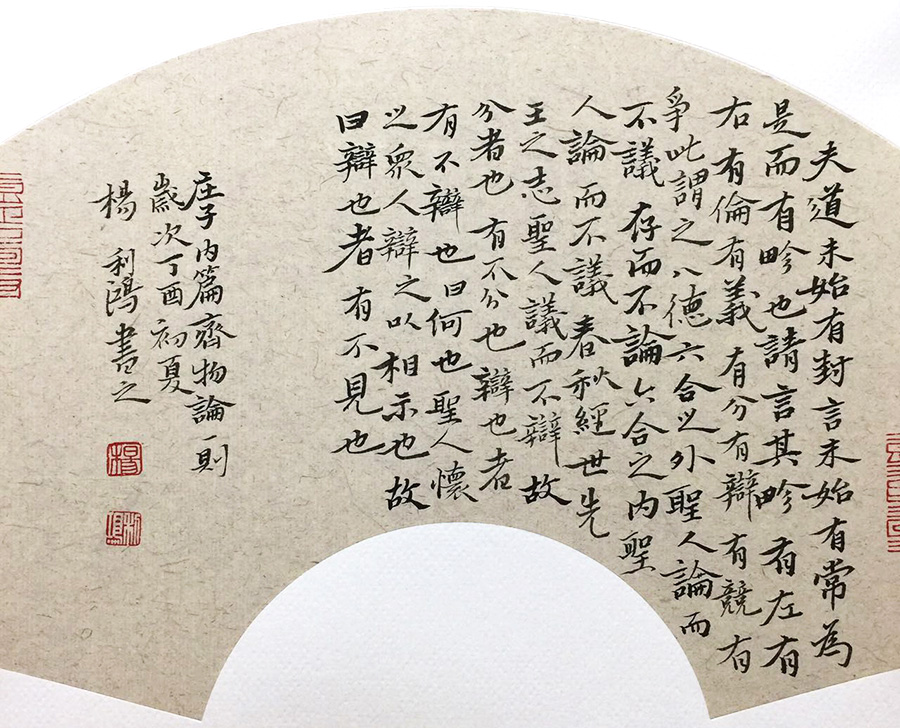 夫道未始有封言未始有常為
是而有畛也請言其畛有左有
右有倫有義有分有辯有競有
爭此謂之八德六合之外聖人論而
不議存而不論六合之内聖
人論而不議春秋經世先
王之志聖人議而不辯故
分者也有不分也辯也者
有不辯也曰何也聖人懷
之衆人辯之以相示也故
曰辯也者有不見也
庄子内篇齊物論一則
歲次丁酉初夏
楊利鴻書之
楊